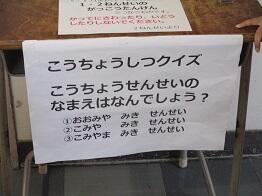 １・２ねんせいの
がっこうたんけん
かってにさわったり、いどう
したりしないでください。
２ねんせいより
こうちょうしつクイズ
こうちょうせんせいの
なまえはなんでしょう？
①おおみや　みき　せんせい
②こみや　みき　せんせい
③こみやま　みき　せんせい